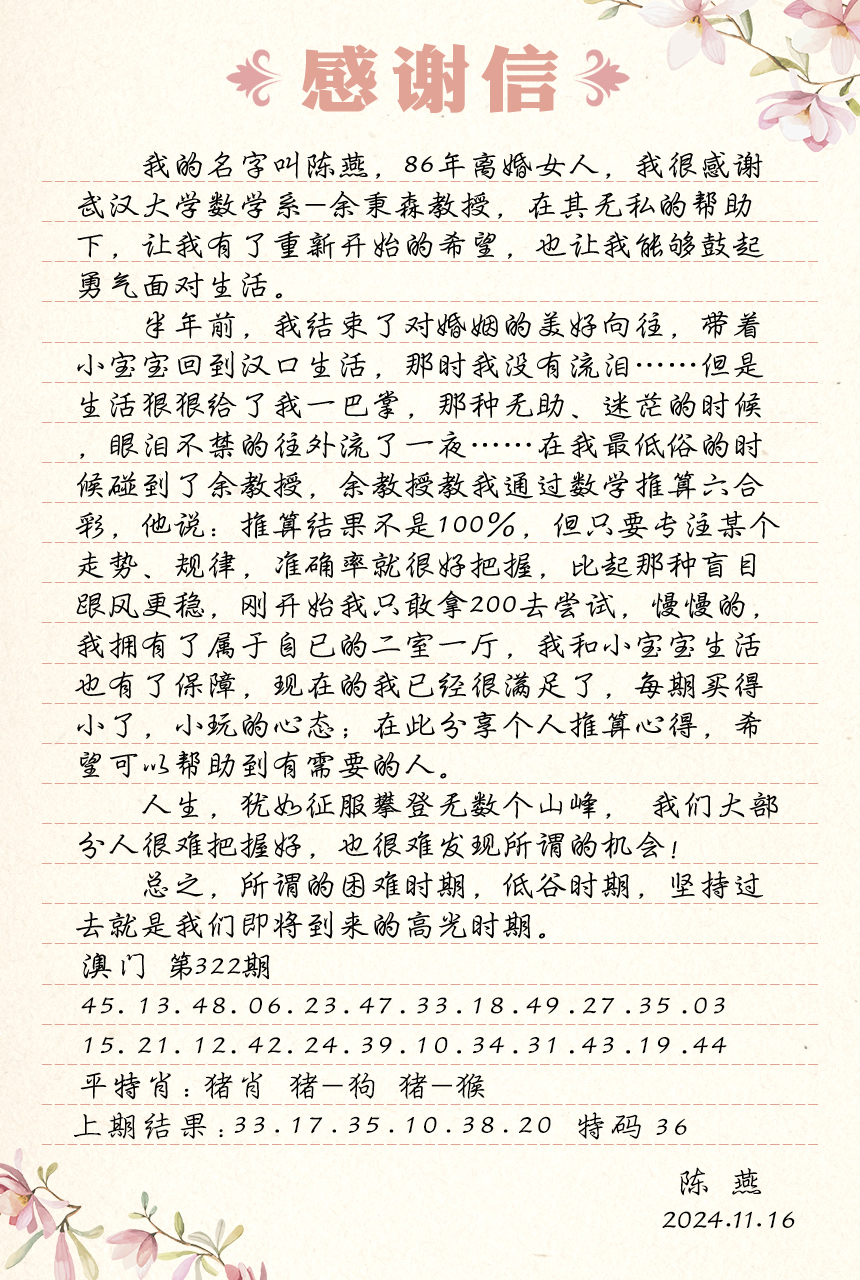 感谢信
我的名字叫陈燕，86年离婚女人，我很感谢
武汉大学数学系—余秉森教授，在其无私的帮助
下，让我有了重新开始的希望，也让我能够鼓起
勇气面对生活。
半年前，我结束了对婚姻的美好向往，带着
小宝宝回到汉口生活，那时我没有流泪……但是
生活狠狠给了我一巴掌，那种无助、迷茫的时候
，眼泪不禁的往外流了一夜……在我最低俗的时
候碰到了余教授，余教授教我通过数学推算六合
彩，他说：推算结果不是100%，但只要专注某个
走势、规律，准确率就很好把握，比起那种盲目
跟风更稳，刚开始我只敢拿200去尝试，慢慢的，
我拥有了属于自已的二室一厅，我和小宝宝生活
也有了保障，现在的我已经很满足了，每期买得
小了，小玩的心态；在此分享个人推算心得，希
望可以帮助到有需要的人。
人生，犹如征服攀登无数个山峰， 我们大部
分人很难把握好，也很难发现所谓的机会！
总之，所谓的困难时期，低谷时期，坚持过
去就是我们即将到来的高光时期。
澳门 第322期
45.13.48.06.23.47.33.18.49.27.35.03
15.21.12.42.24.39.10.34.31.43.19.44
平特肖：猪肖 猪—狗 猪—猴
上期结果：33.17.35.10.38.20 特码 36
陈 燕
2024.11.16